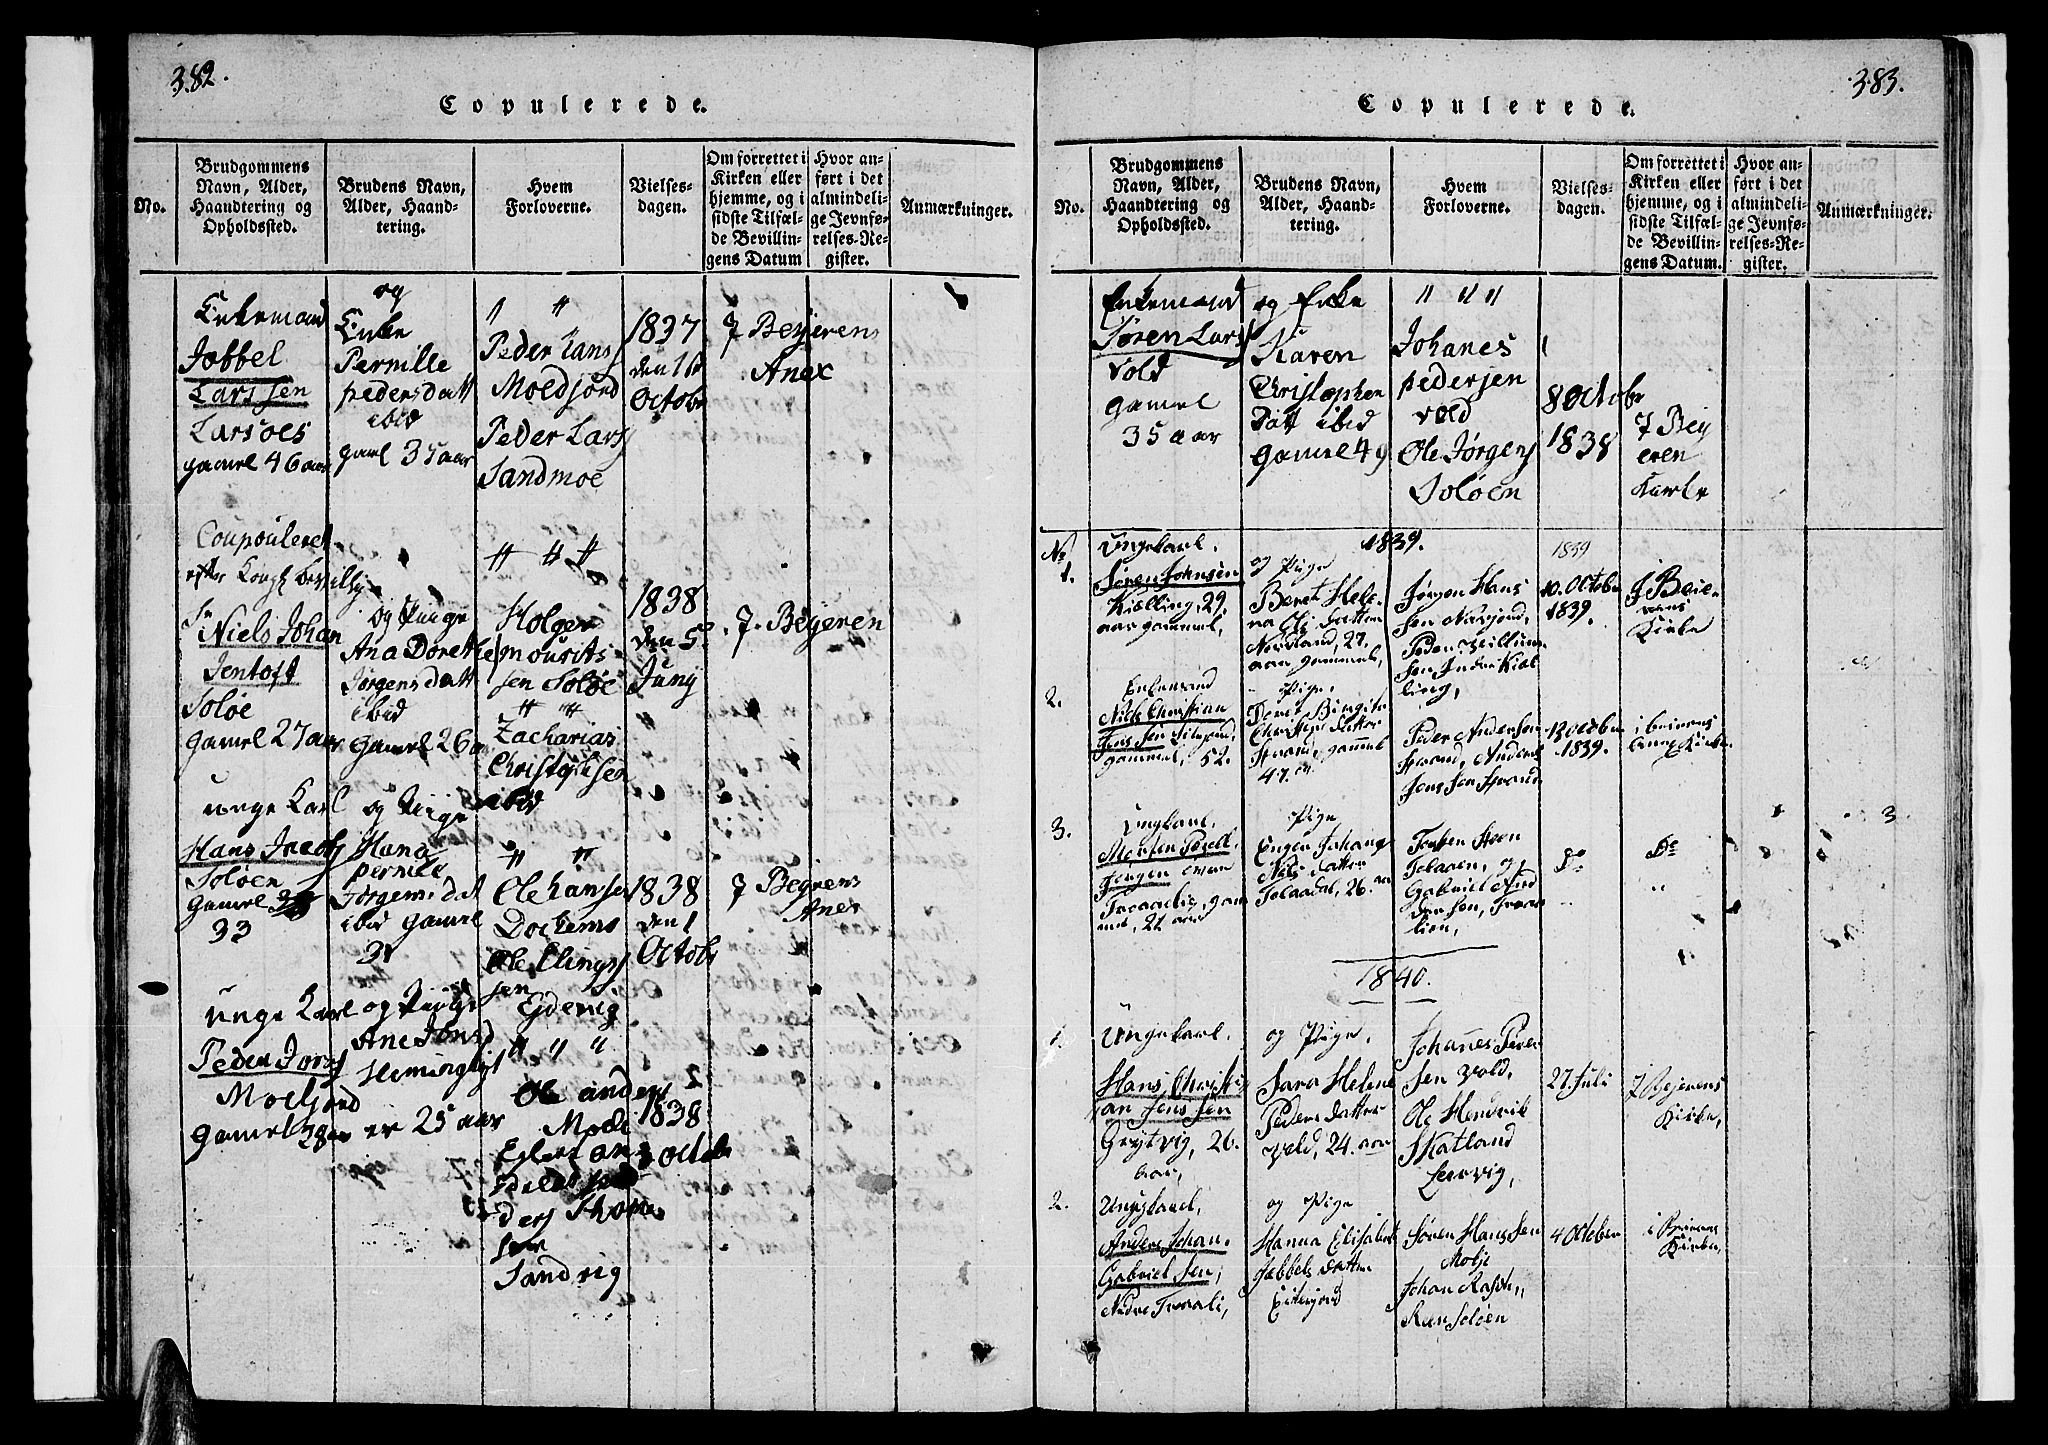 382.
Copulerede.
No.
Brudgommens
Navn, Alder,
Haandtering og
Opholdssted.
Brudens Navn,
Alder, Haand-
tering.
Hvem
Forloverne.
Vielses-
dagen.
Om forrettet i
Kirken eller
hjemme, og i
sidste Tilfæl-
de Bevillin-
gens Datum
Hvor an-
ført i det
almindeli-
ge Jevnfø-
relses-Re-
gister.
Anmærkninger.
Enkemand
Jobbel
Larssen
Larsoes
gamel 46 aar
og
Enke
Pernille
pedersdatt
ibid
gaml 35 aar
Peder Larss
Moldjord
Peder Larss
Sandmoe
1837
den 16
Octobr
J Beyerens
Anex
Coupouleret
efter Kongl bevillg
Sr
Niels Johan
Jentoft
Soløe
Gamel 27 aar
og Piige
Ana Dorethe
Jørgensdatt
ibid
Gamel 26
Holger
mourits
sen Soløe
Zacharias
Christophsen
ibid
1838
den 5
Juny
J. Beyeren
unge Karl
Hans Jacobs
Soløen
Gamel
33
og Piige
Hana
pernile
Jørgensdat
ibid gamel
31
Ole hansen
Dockems
Ole Elings
sen
Ejdevig
1838
den 1
Octobr
J Beyrens
Anex
unge Karl
Peder Jonss
Moeljord
Gamel 28 aar
og Piige
Ane Jons d
Hemminglyt
er 25 aar
Ole anders
Moe
1838
octobr
Sandvig
383.
Copulerede.
No.
Brudgommens
Navn, Alder,
Haandtering og
Opholdssted.
Brudens Navn,
Alder, Haand-
tering.
Hvem
Forloverne.
Vielses-
dagen.
Om forrettet i
Kirken eller
hjemme, og i
sidste Tilfæl-
de Bevillin-
gens Datum.
Hvor an-
ført i det
almindeli-
ge Jevnfø-
relses-Re-
gister.
Anmærkninger.
Enkemand
Søren Lars
Vold
gamel
35 aar
og Enke
Karen
Christophen
Datt ibid
Gamel 49
Johanes
pedersen
vold
Ole Jørgens
Soløen
8 Octobr
1838
J Bey
eren
Kirke
1839.
No
1.
Ungekarl.
Søren Johnsen
Kiælling, 29.
aar gammel,
og Pige
Beret Hele-
na Ols Datter
Nordland, 27.
aar gammel,
Jørgen Hans
Sen
Peder Villum-
Sen Indre Kiæl
ling,
1839
10. October
1839.
J Beie-
rens
Kirke
2.
Enkemand
Niels Christian
Jens Sen
gammel, 52.
Pige.
Beret Birgite
Christops Datter
Strand, gammel
47. a.
Peder Andersen
Strand, Anders
Jens Sen Strand
13 October
1839.
i beierens
Kirke
3.
Ungkarl.
Morten Peell
Jørgen
Traaelie, gam
mel, 22 aar
Pige
Inger Johana
Nils Datter
Tolaadal, 26. aar
Tolaaen, og
Gabriel And
Dersen, Traa
lien,
Do
Do
3
1840.
1.
Ungekarl.
Hans Christi
an Jens Sen
Grytvig, 26.
aar,
og Pige,
Sara Helena
Peders Datter
Vold, 24. aar
Johannes Peder
Sen Vold,
Ole Hendrik
Skatland
Leervig,
27. Juli
J Bejerens
Kirke,
2.
Ungkarl,
Anders Johan.
Gabriel Sen,
Nedre Traali,
og Pige
Hanna Elisabet
Jæbbels Datter
Eiterjord
Søren Hans Sen
Molje
Johan Rasch,
Ran Soløen
4 October
i Beierens
Kirke,